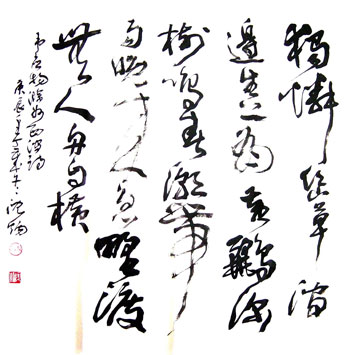 獨憐幽草澗
邊生上有黃鸝深
樹鳴春潮帶
雨晚來急野渡
無人舟自橫
韋應物滁州西澗詩
庚辰